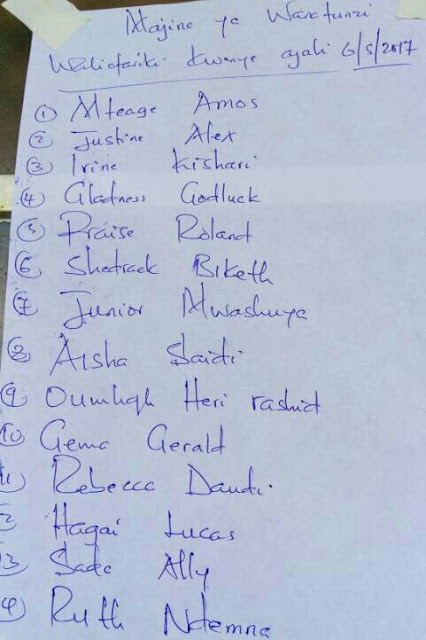 Majina ya Wanafunzi
Waliofariki kwenye ajali 6/5/2017
① Mteage Amos
② Justine Alex
③ Irine Kishari
④ Gladness Godluck
⑤ Praise Roland
⑥ Shadrack Biketh
⑦ Junior Mwashuya
⑧ Aisha Saidi
⑨ Oumliqh Heri rashid
⑩ Gema Gerald
11 Rebecca Daudi
2 Hagai Lucas
3 Sada Ally
4 Ruth Ndemna